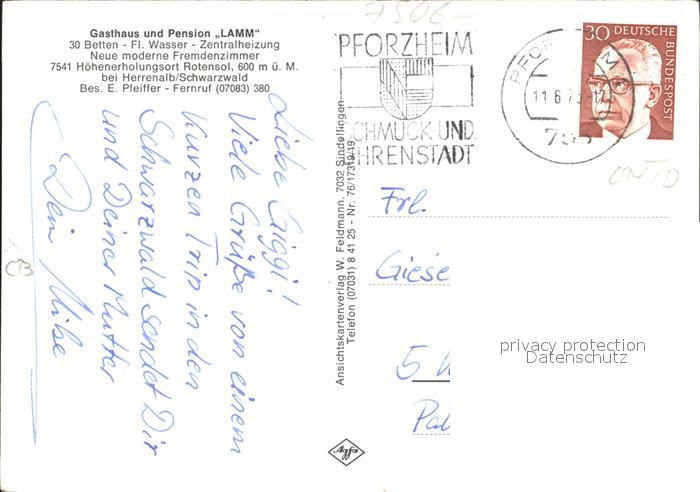 Gasthaus und Pension „LAMM"
30 Betten - Fl. Wasser - Zentralheizung
Neue moderne Fremdenzimmer
7541 Höhenerholungsort Rotensol, 600 m ü. M.
bei Herrenalb/Schwarzwald
Bes. E. Pfeiffer - Fernruf (07083) 380
Liebe Giggi!
Viele Grüße von einem
kurzen Trip in den
Schwarzwald sendet Dir
und Deiner Mutter
Dein
CB
Ansichtskartenverlag W. Feldmann, 7032 Sindelfingen
Telefon (07031) 8 41 25 - Nr. 76/17319/49
Agfa
7506-
PFORZHEIM
SCHMUCK UND
UHRENSTADT
PFOR M
11.6.7
30 DEUTSCHE
BUNDESPOST
Frl.
Giese
5
privacy protection
Datenschutz